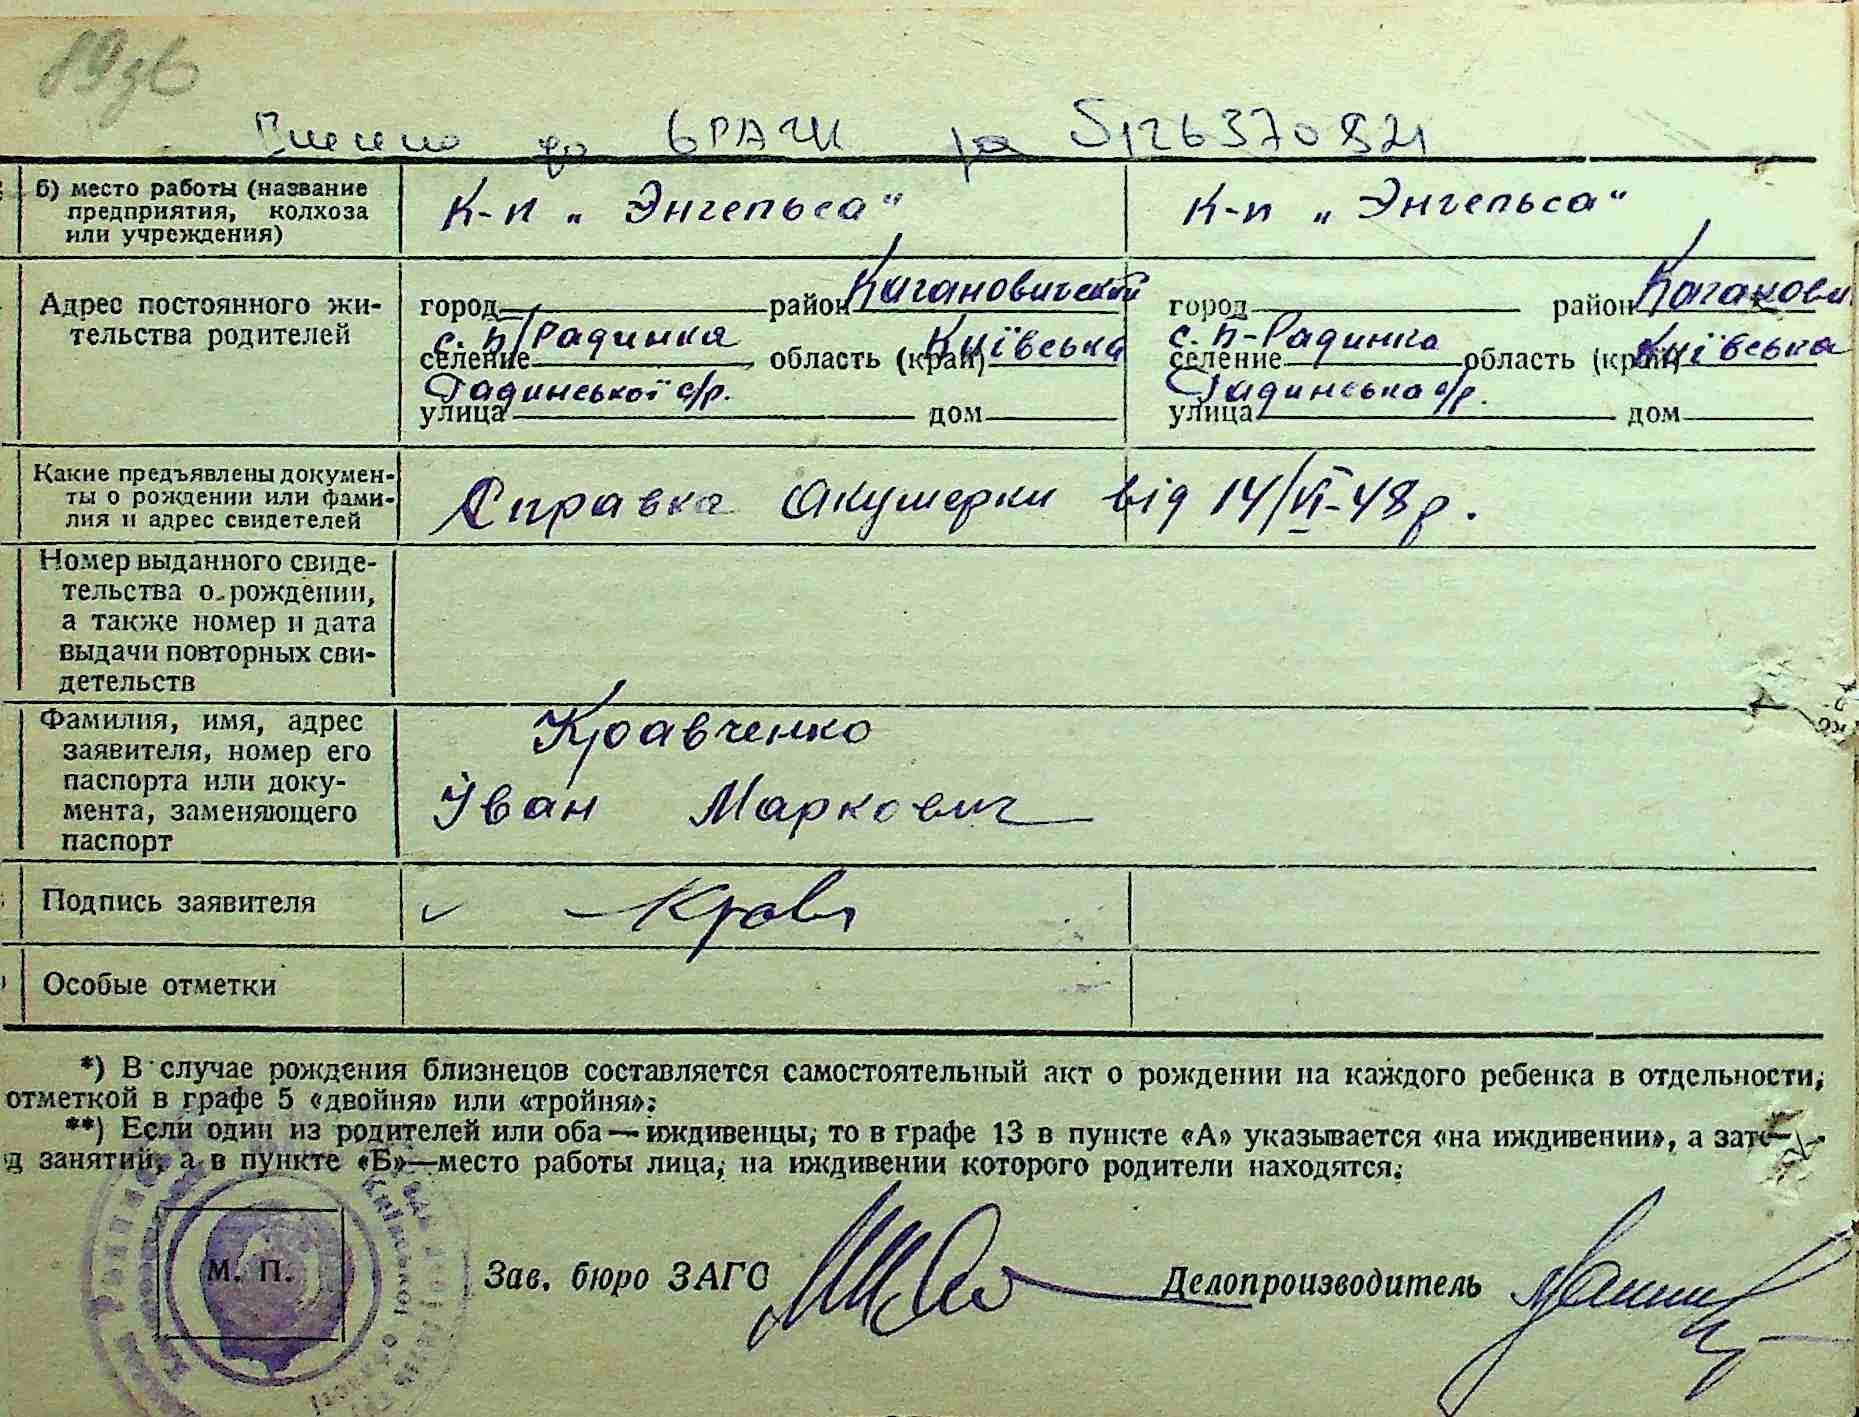 89зб
Внесено до БРАЦИ за 5126370821
б) место работы (название предприятия, колхоза или учреждения)
К-п „Энгельса“
К-п „Энгельса“
Адрес постоянного жительства родителей
город район Кагановический
селение с. П/Радинка область (край) Київська
Радинської с/р.
улица дом
город район Каганови
селение с. П-Радинка область (край) Київська
Радинська с/р.
улица дом
Какие предъявлены документы о рождении или фамилия и адрес свидетелей
Справка Акушерки від 14/VI-48 р.
Номер выданного свидетельства о рождении, а также номер и дата выдачи повторных свидетельств
Фамилия, имя, адрес заявителя, номер его паспорта или документа, заменяющего паспорт
Кравченко
Іван Маркович
Подпись заявителя
Крав
Особые отметки
*) В случае рождения близнецов составляется самостоятельный акт о рождении на каждого ребенка в отдельности,
отметкой в графе 5 «двойня» или «тройня».
**) Если один из родителей или оба — иждивенцы, то в графе 13 в пункте «А» указывается «на иждивении», а зат
д занятий, а в пункте «Б»—место работы лица, на иждивении которого родители находятся.
М. П.
Київської області
Зав. бюро ЗАГС
Делопроизводитель